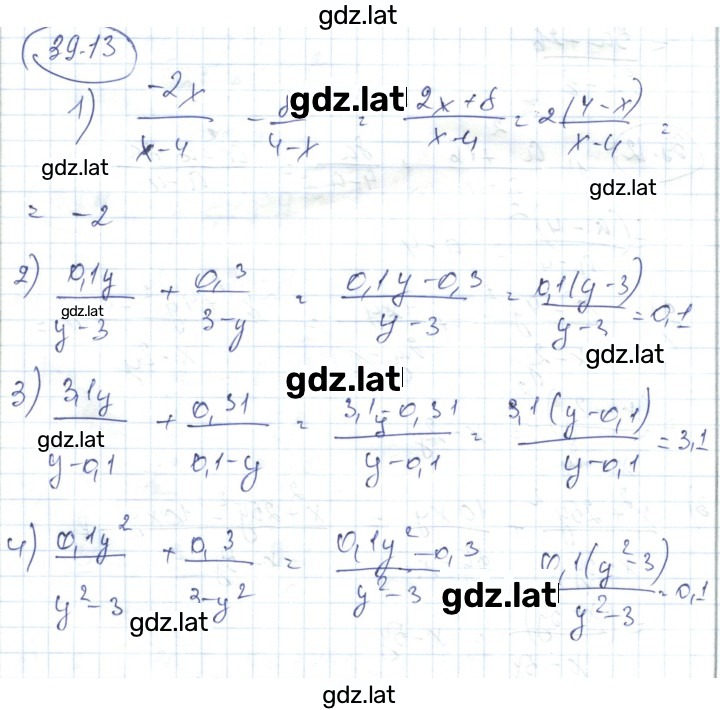 gdz.lat
39.13
1) -2x/(x-4) - 8/(4-x) = (2x+8)/(x-4) = 2(4-x)/(x-4) =
gdz.lat
gdz.lat
gdz.lat
= -2
2) 0,1y/(y-3) + 0,3/(3-y) = (0,1y-0,3)/(y-3) = 0,1(y-3)/(y-3) = 0,1
gdz.lat
gdz.lat
gdz.lat
3) 3,1y/(y-0,1) + 0,31/(0,1-y) = (3,1y-0,31)/(y-0,1) = 3,1(y-0,1)/(y-0,1) = 3,1
gdz.lat
4) 0,1y²/(y²-3) + 0,3/(3-y²) = (0,1y²-0,3)/(y²-3) 0,1(y²-3)/(y²-3) = 0,1
gdz.lat
gdz.lat
gdz.lat